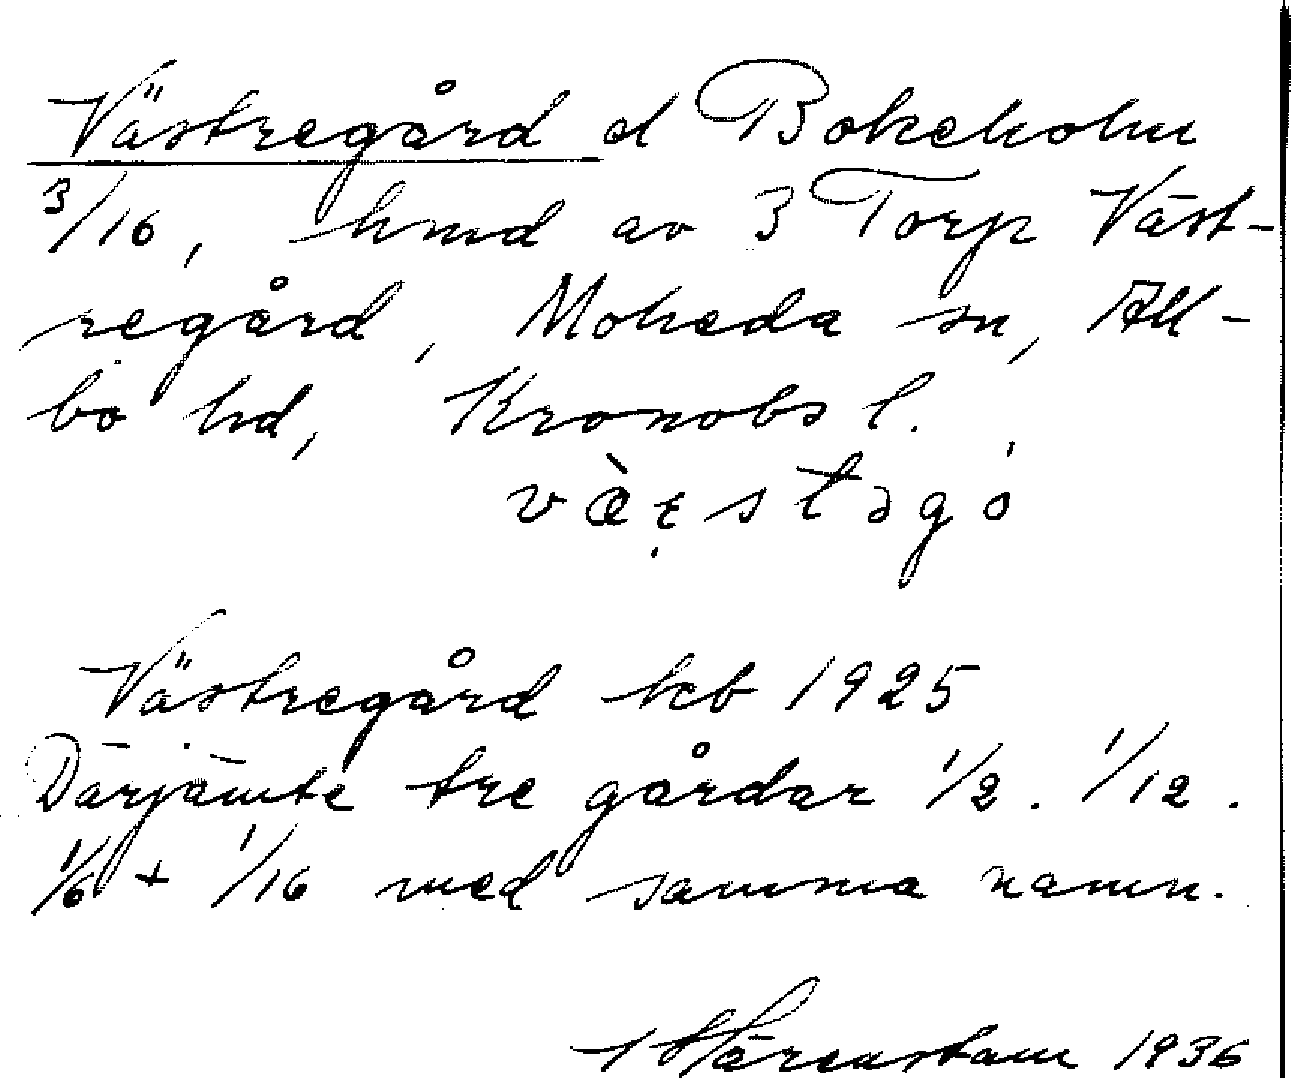 Västregård el Bokeholm
3/16, hmd av 3 Torp Väst-
regård, Moheda sn, All-
bo hd, Kronobs l.
Västregård kcb 1925
Därjämte tre gårdar 1/2. 1/12.
1/6 + 1/16 med samma namn.
1936